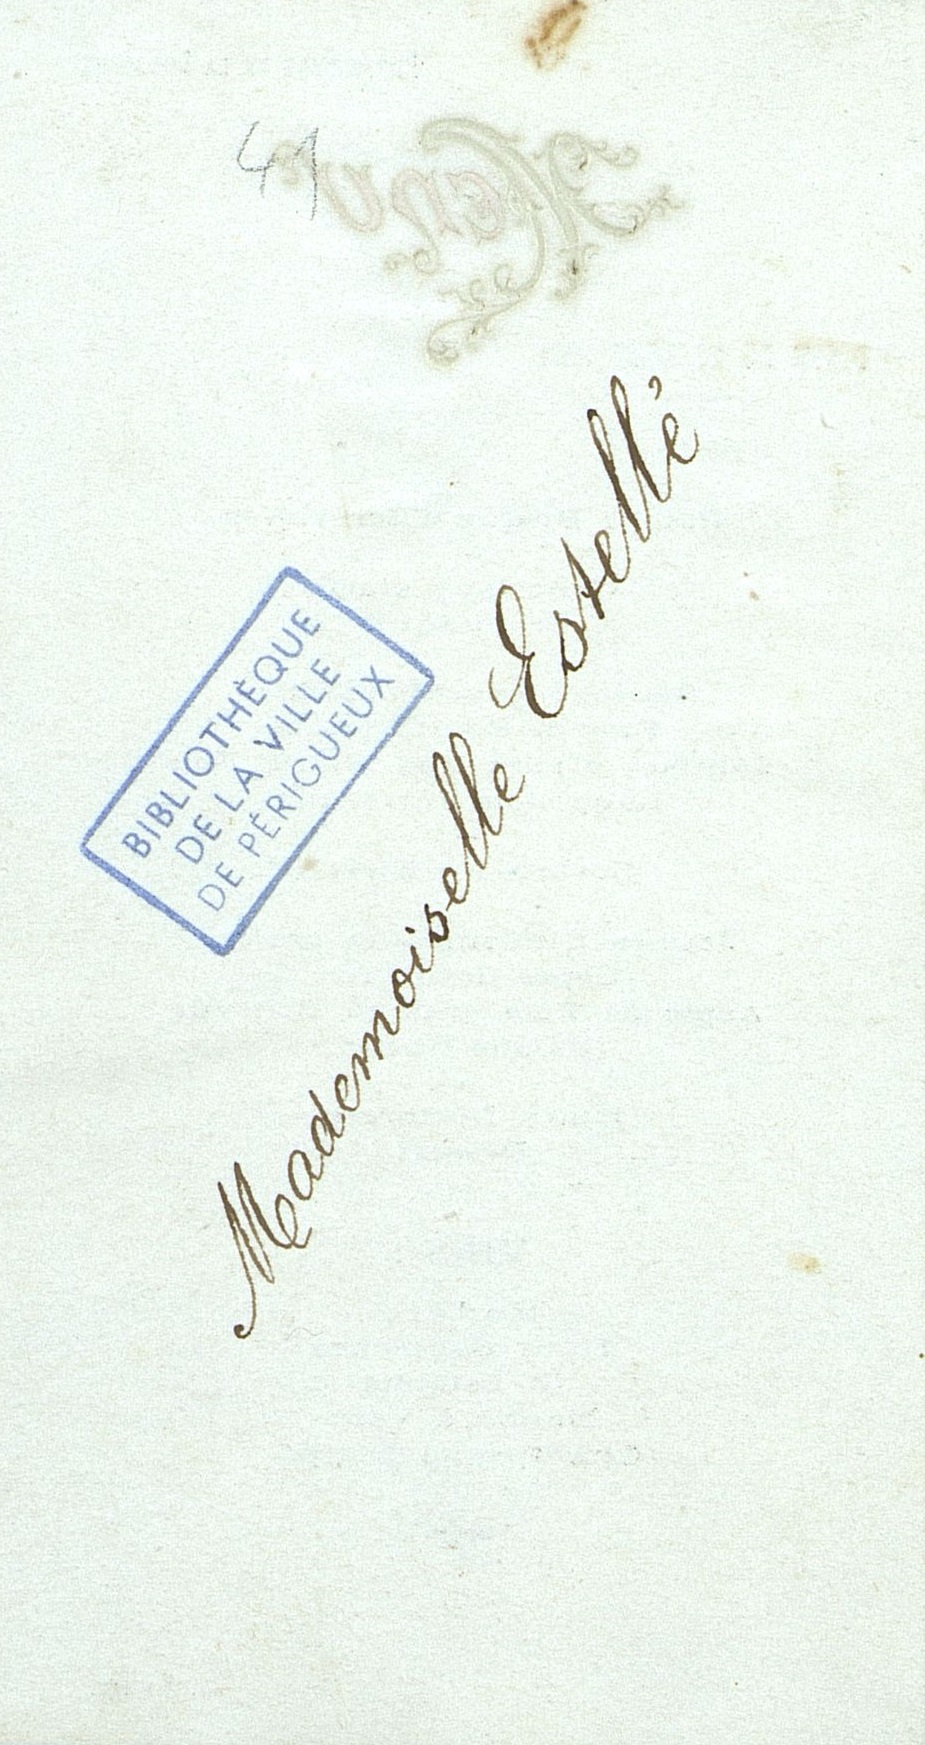 41
Menu
Mademoiselle Estellé
BIBLIOTHÈQUE
DE LA VILLE
DE PÉRIGUEUX